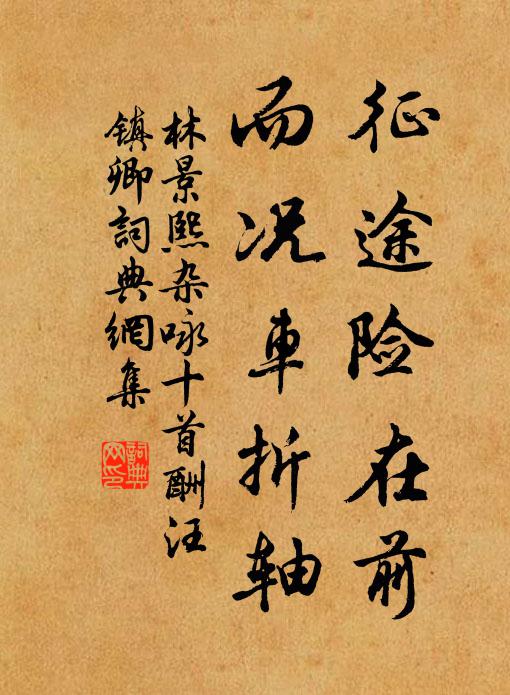 征途险在前
而况車折轴
林景熙杂咏十首酬汪
镇卿詞典網集
詞典
网印